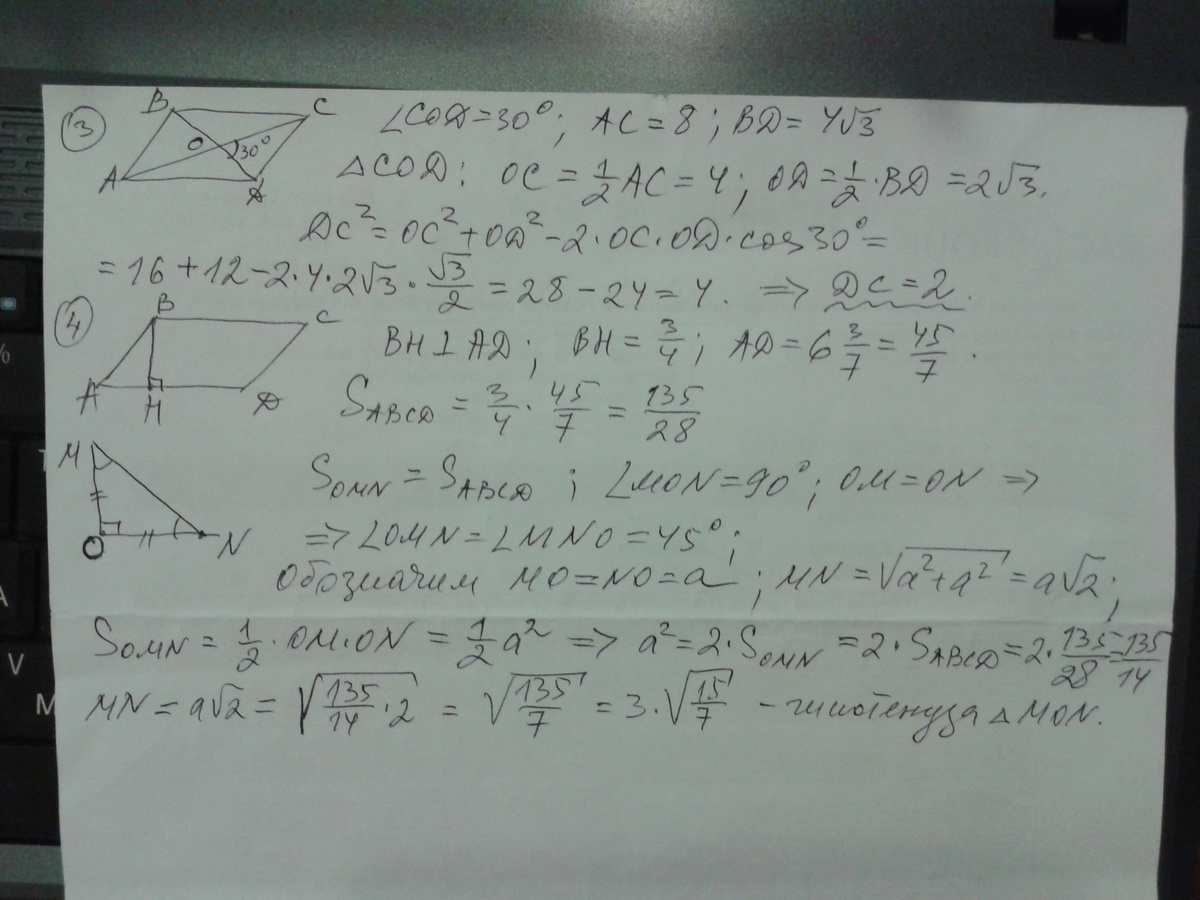 ③ B C ∠COD=30°; AC=8; BD=4√3
O 30°
A D △COD: OC=1/2AC=4; OD=1/2·BD=2√3.
DC²=OC²+OD²-2·OC·OD·cos30°=
=16+12-2·4·2√3·√3/2=28-24=4. ⇒ DC=2.
④ B C BH⊥AD; BH=3/4; AD=6 3/7=45/7.
A H D S_ABCD=3/4·45/7=135/28
M S_OMN=S_ABCD; ∠MON=90°; OM=ON ⇒
O N ⇒∠OMN=∠MNO=45°;
обозначим MO=NO=a; MN=√(a²+a²)=a√2;
S_OMN=1/2·OM·ON=1/2a² ⇒ a²=2·S_OMN=2·S_ABCD=2·135/28=135/14
MN=a√2=√(135/14·2)=√(135/7)=3·√(15/7) - гипотенуза △MON.